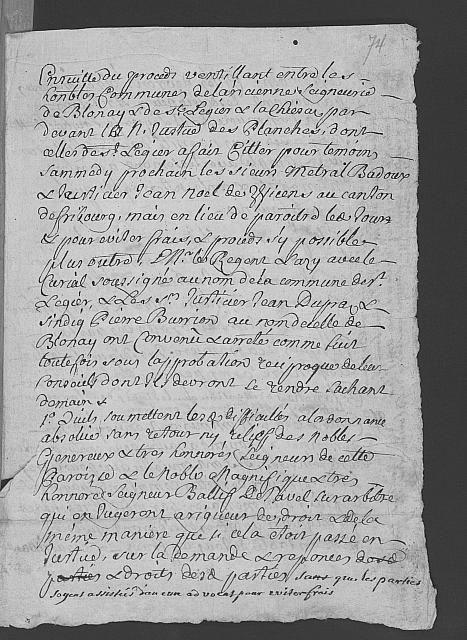 74
Ensuitte du procedz ventillant entre les
honbles Communes de lancienne Seigneurie
de Blonay & de St Legier & la Chiesa, par
devant la N. Justice des Planches, dont
celle de St Legier a fait Citter pour temoins
sammedy prochain les sieurs Metral Badoux
& Justicier Jean Noel de au canton
de fribourg, mais en lieu de paroitre led. Jours
& pour eviter frais, & proceds s'y possible
plus outre, le Regent Lavy avec le
Curial soussigné au nom de la commune de St
Legier, & Les Srs Justicier Jean Dupraz &
Sindiq Pierre Burrion au nom de celle de
Blonay ont Convenu & arreté comme suit
toutefois sous l'approbation reciproque de leur
Conseils dont Ils devront se rendre sachant
domain &
1o Quils soumettent les d. difficultes a lordonnance
absolue sans retour ny relief des Nobles
Genereux & tres honnorés Seigneurs de cette
Paroisse & le Noble Magnifique & tres
honnoré Seigneur Ballif De Laval
qui en Jugeront a rigueur de droit & de la
meme maniere que si cela etoit passé en
Justice, sur la Demande & reponces
parties & droits de d. parties sans que les parties
soyent assistées dau cun ad vocat pour eviter frais